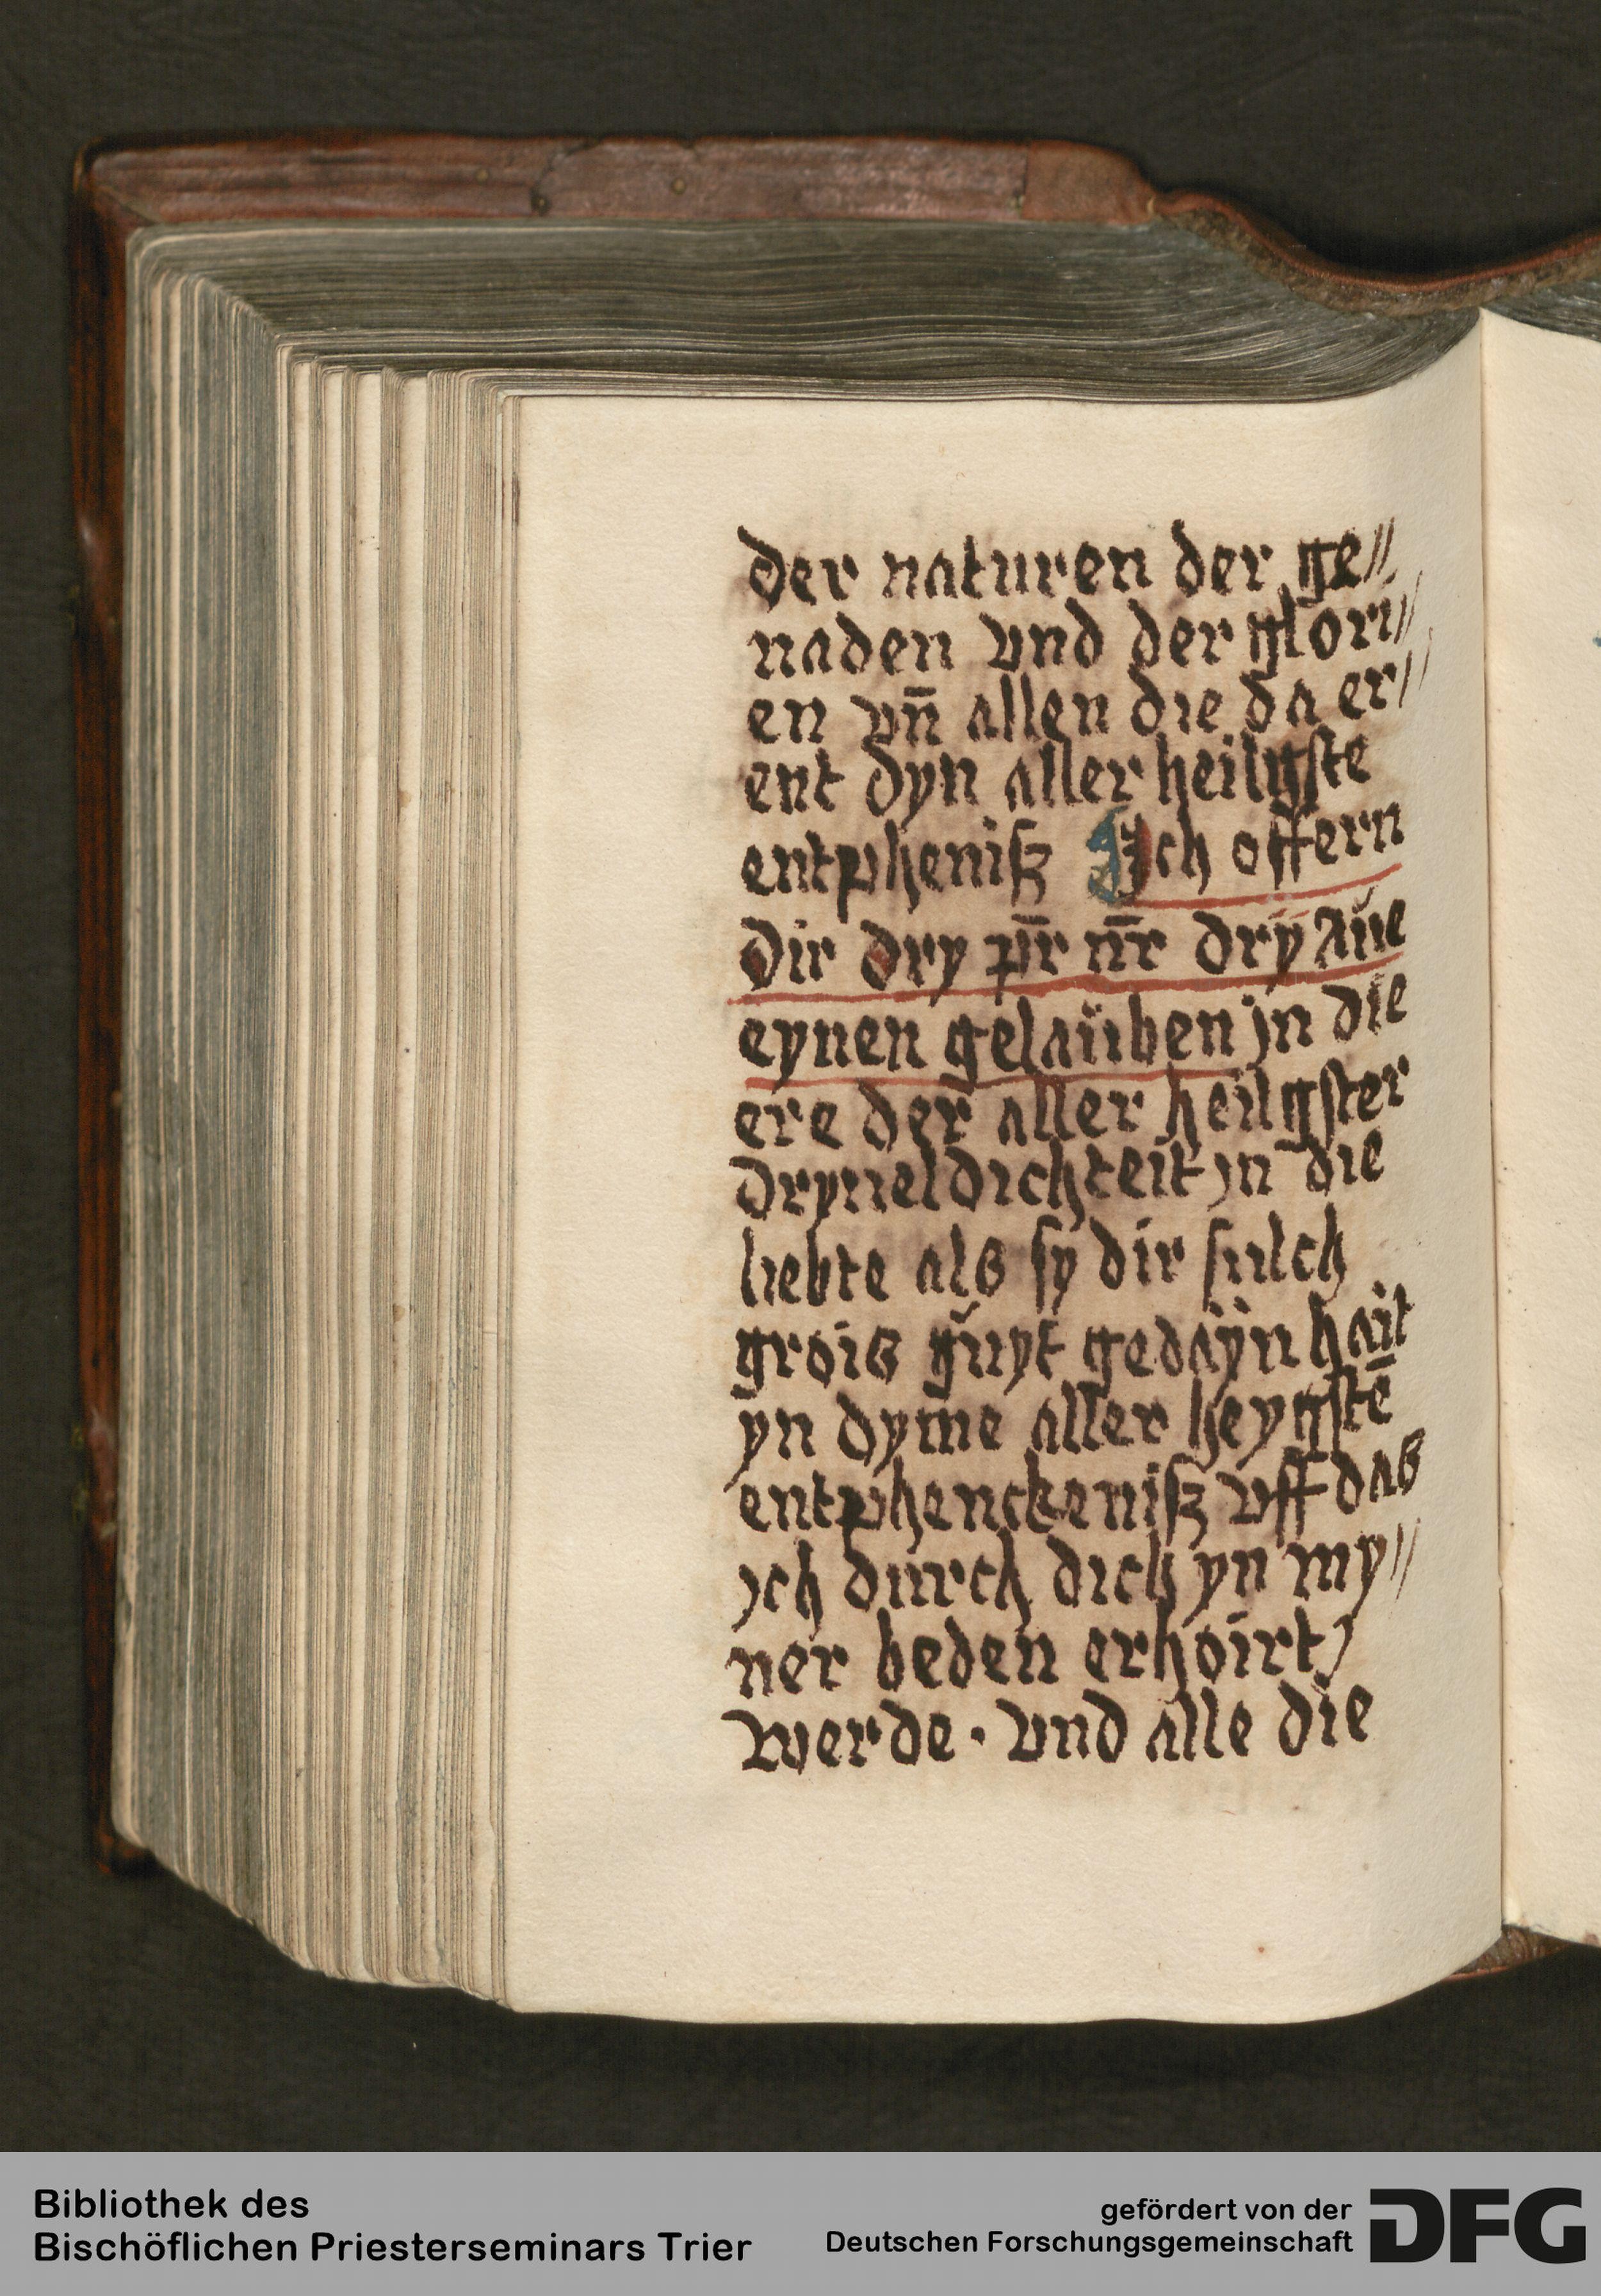 der naturen der ge//
naden vnd der glori//
en vn̄ allen die da er//
ent dyn aller heilgste
entpheniſz Jch offern
dir dry pr̄ nr̄ dry Aue
eynen gelauben jn die
ere der aller heilgster
dryueldichteit jn die
liebte als sy dir sulch
grois guyt gedayn hait
yn dyme aller heygstē
entphenckeniſz vff das
jch durch dich yn my//
ner beden erhoirt
werde · vnd alle die
Bibliothek des
Bischöflichen Priesterseminars Trier
gefördert von der
Deutschen Forschungsgemeinschaft
DFG